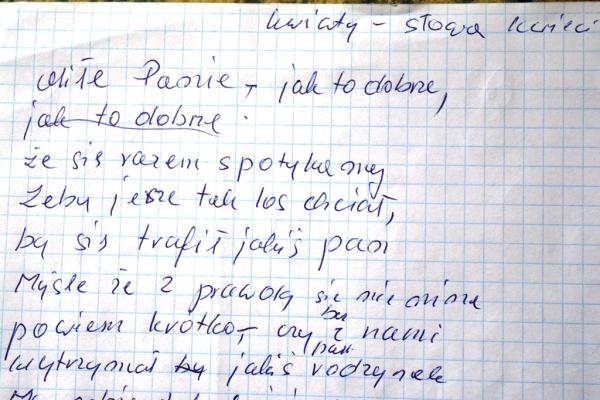 kwiaty - słowa kwieci
Miłe Panie, jak to dobrze,
jak to dobrze.
że się razem spotykamy
Żeby jesze tak los chciał,
by się trafił jakiś pan
Myśle że z prawdą się nie mine
powiem krótko, czy by z nami
wytrzymał by jakiś pan rodzynek